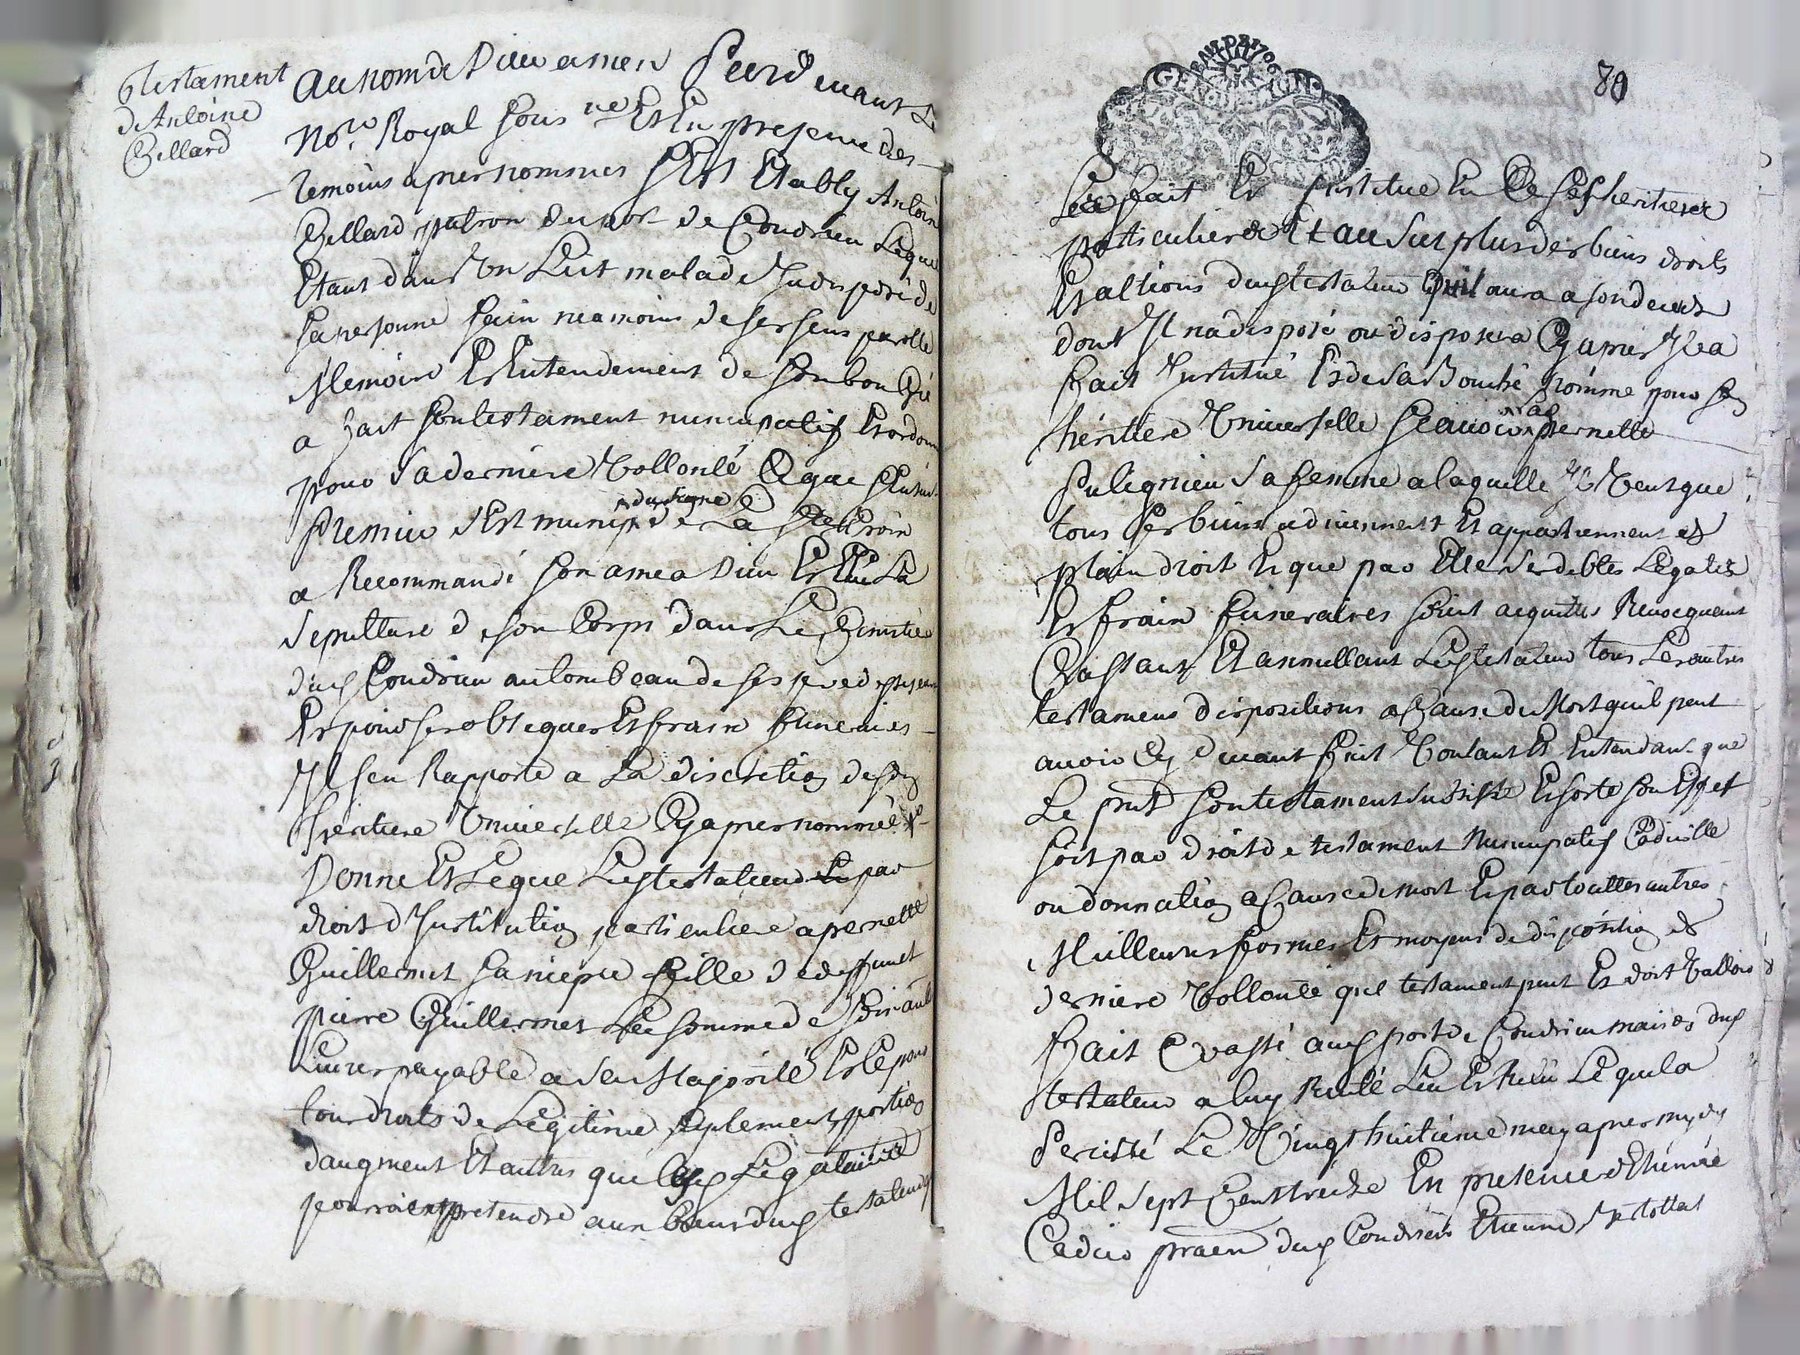 Testament
de Antoine
Gillard
Au nom de Dieu amen Pardevant Le
No.re Royal sous.né Et En presence des
temoins apres nommes S'Est Etably Antoine
Gillard patron du port de Condrieu Lequel
Etant dans Un Lict malade Indisposé de
sa personne sain neamoins de ses sens parolle
Memoire Et Entendement de son bon Gré
a fait son testament nuncupatif Et ordonn
pour sa derniere Vollonté Que sensuit
Premier s'Est muny du signe de La Ste Croix
a Recommandé son ame a Dieu Et Elu La
sepulture de son Corps dans Le Cimetiere
dud Condrieu au tombeau de ses predecesseurs
Et pour ses obseques Et frais funeraires
Il s'en Rapporte a La discretion de son
heritiere Universelle Cy apres nommée
Donne Et Legue Led testateur par
droit d'Institution particuliere a pernette
Guillermet sa niepce fille de deffunct
pierre Guillermet La somme de soixante
Livres payable a sa Majorité Et Ce pour
tous droits de Legitime suplement portion
d'augment Et autres que Lad Legataire
pourroit pretendre aux biens dud testateur
80
GENERALITE
L'a fait Et Institue En Ce Ses heritiere
particuliere Et au Surplus des biens droits
Et actions dud testateur Quil aura a son deces
dont Il na disposé ou disposera Cy apres Il a
fait Institué Et de Sa Bouche Nommé pour son
heritiere Universelle pernette
Pulignieu Sa femme a laquelle Il Veut que
tous ses biens adviennent Et appartiennent de
plain droit Et que par Elle Ses debtes Legats
Et frais funeraires soint acquittes Revocquant
Cassant Et annullant Led testateur tous Les autres
testamens dispositions a Cause de Mort quil peut
avoir Cy devant fait Voulant Et Entendant que
Le pnt son testament subsiste Et sorte son Effet
soit par droit de testament Nuncupatif Codicille
ou donnation a Cause de mort Et par touttes autres
Meilleures formes Et moyens de disposition de
derniere Vollonté quel testament peut Et doit Valloir
Fait Et passé aud port de Condrieu maison dud
testateur a luy Recité Leu Et Releu Lequel a
Persisté Le Vingt huitieme may apres midy
Mil sept Cent treize En presence d'Etienne
Cadier praen dud Condrieu Etienne